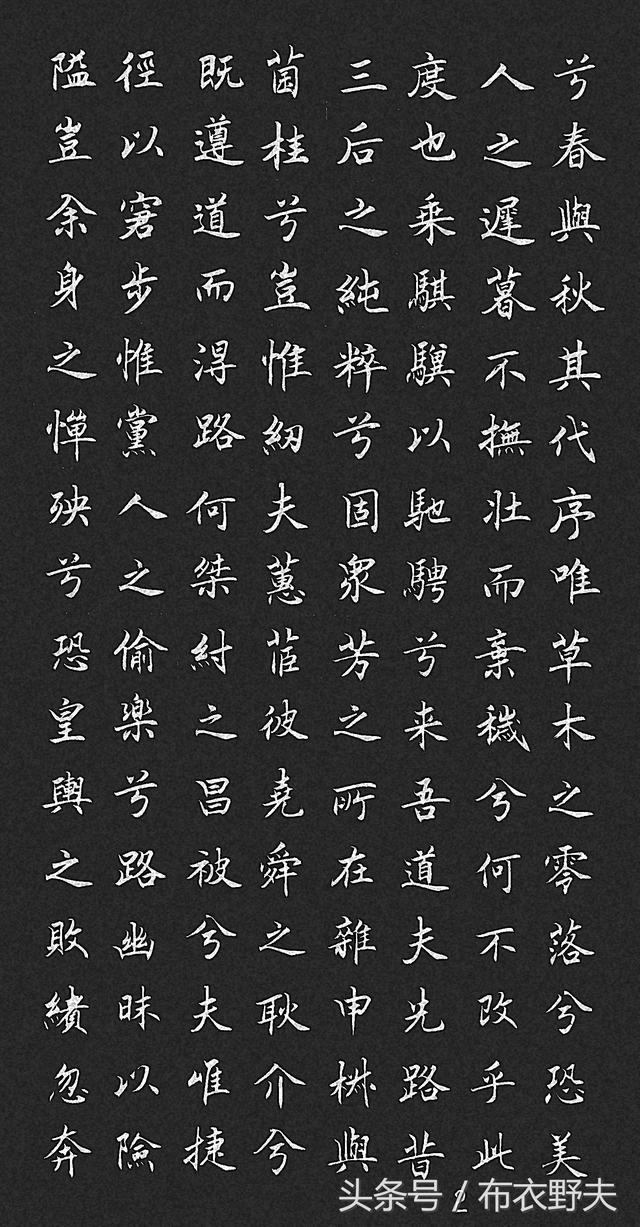 兮春與秋其代序唯草木之零落兮恐美
人之遲暮不撫壯而棄穢兮何不改乎此
度也乘騏驥以馳騁兮来吾道夫先路昔
三后之純粹兮固衆芳之所在雜申椒與
菌桂兮豈惟紉夫蕙茝彼堯舜之耿介兮
既遵道而得路何桀紂之昌被兮夫唯捷
徑以窘步惟黨人之偷樂兮路幽昧以險
隘豈余身之憚殃兮恐皇輿之敗績忽奔
头条号 / 布衣野夫